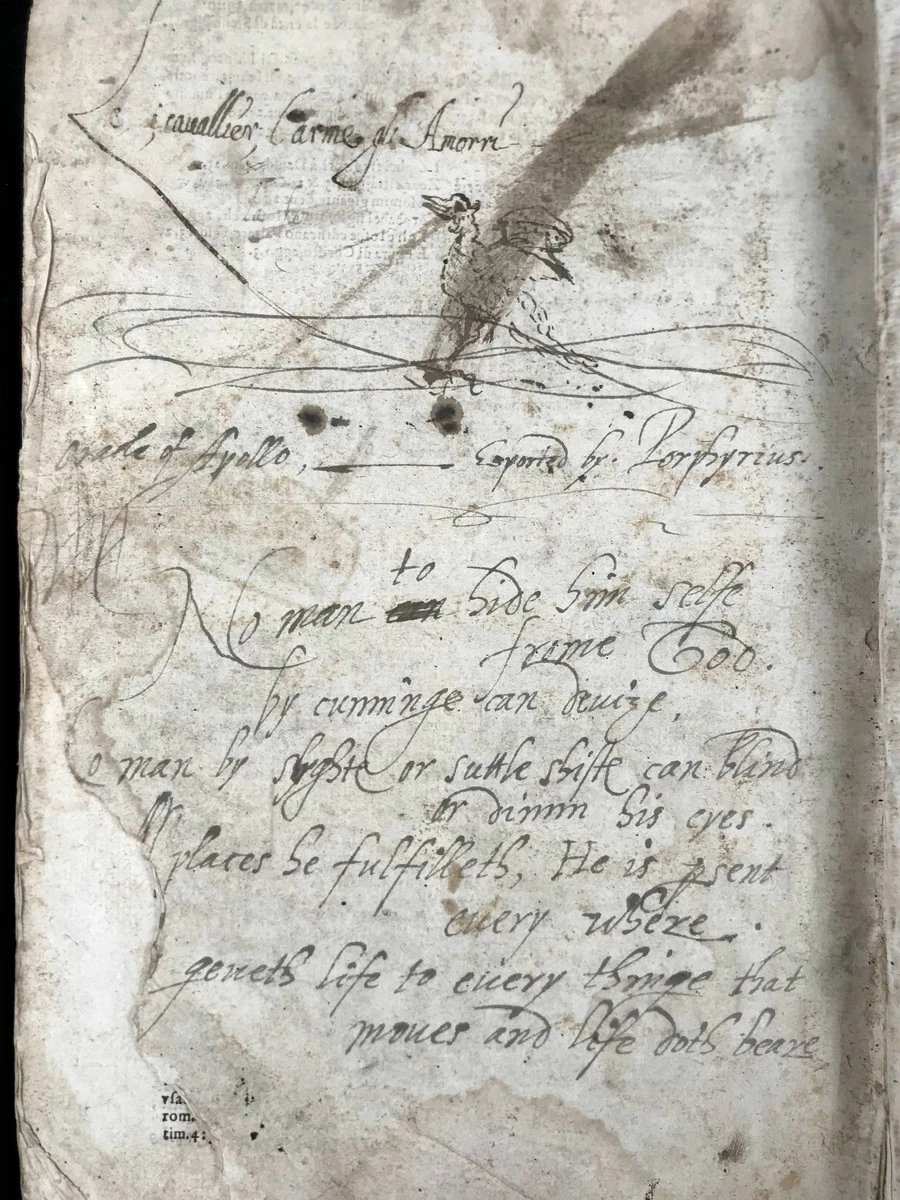 i cauallier, l'arme gli Amorri
Oracle of Apollo, reported by Porphyrius.
to
No man can hide him selfe
frome God.
by cunninge can deuize,
o man by slyghte or suttle shifte can blind
or dimm his eyes.
All places he fulfilleth, He is psent
euery where.
geueth life to euery thinge that
moues and life doth beare
vsa.
rom.
tim.4: